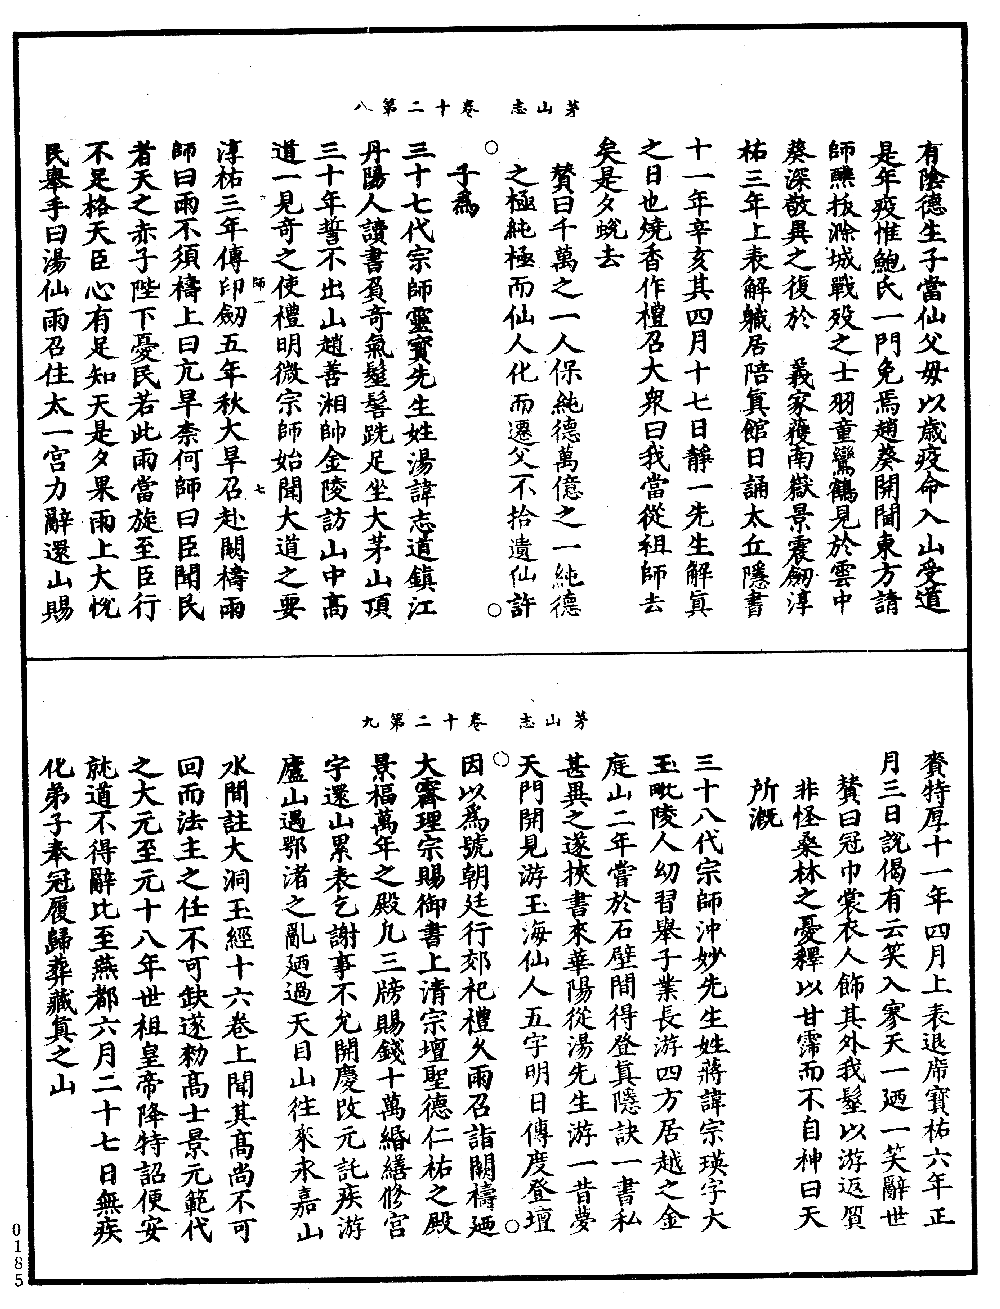 茅山志　卷十二第八
有陰德生子當仙父毋以歲疫命入山受道
是年疫惟鮑氏一門免焉趙葵開閫東方請
師醮拔滁城戰歿之士羽童鸞鶴見於雲中
葵深敬異之復於　義家獲南嶽景震劒淳
祐三年上表解軄居陪真館日誦太丘隱書
十一年辛亥其四月十七日靜一先生解眞
之日也燒香作禮召大衆曰我當從祖師去
矣是夕蛻去
賛曰千萬之一人保純德萬億之一純德
之極純極而仙人化而遷父不拾遺仙許
子爲
三十七代宗師靈寳先生姓湯諱志道鎮江
丹陽人讀書負奇氣髽髻跣足坐大茅山頂
三十年誓不出山趙善湘帥金陵訪山中髙
道一見奇之使禮明微宗師始聞大道之要
師一　七
淳祐三年傳印劒五年秋大旱召赴闕禱雨
師曰雨不須禱上曰亢旱柰何師曰臣聞民
者天之赤子陛下憂民若此雨當旋至臣行
不足格天臣心有足知天是夕果雨上大悅
民舉手曰湯仙雨召住太一宫力辭還山賜
茅山志　卷十二第九
賚特厚十一年四月上表退席寶祐六年正
月三日說偈有云笑入寥天一廼一笑辭世
賛曰冠巾裳衣人飾其外我髽以游返質
非怪桑林之憂釋以甘霈而不自神曰天
所溉
三十八代宗師沖妙先生姓蔣諱宗瑛字大
玉毗陵人幼習舉子業長游四方居越之金
庭山二年嘗於石壁間得登真隱訣一書私
甚異之遂挾書來華陽從湯先生游一昔夢
天門開見游玉海仙人五字明日傳度登壇
因以爲號朝廷行郊祀禮乆雨召詣闕禱廼
大霽理宗賜御書上清宗壇聖德仁祐之殿
景福萬年之殿凡三牓賜錢十萬緡繕修宫
宇還山累表乞謝事不允開慶改元託疾游
廬山遇鄂渚之亂廼過天目山徃來永嘉山
水間註大洞玉經十六卷上聞其髙尚不可
回而法主之任不可缺遂勑髙士景元範代
之大元至元十八年世祖皇帝降特詔便安
就道不得辭比至燕都六月二十七日無疾
化弟子奉冠履歸葬藏真之山
0185